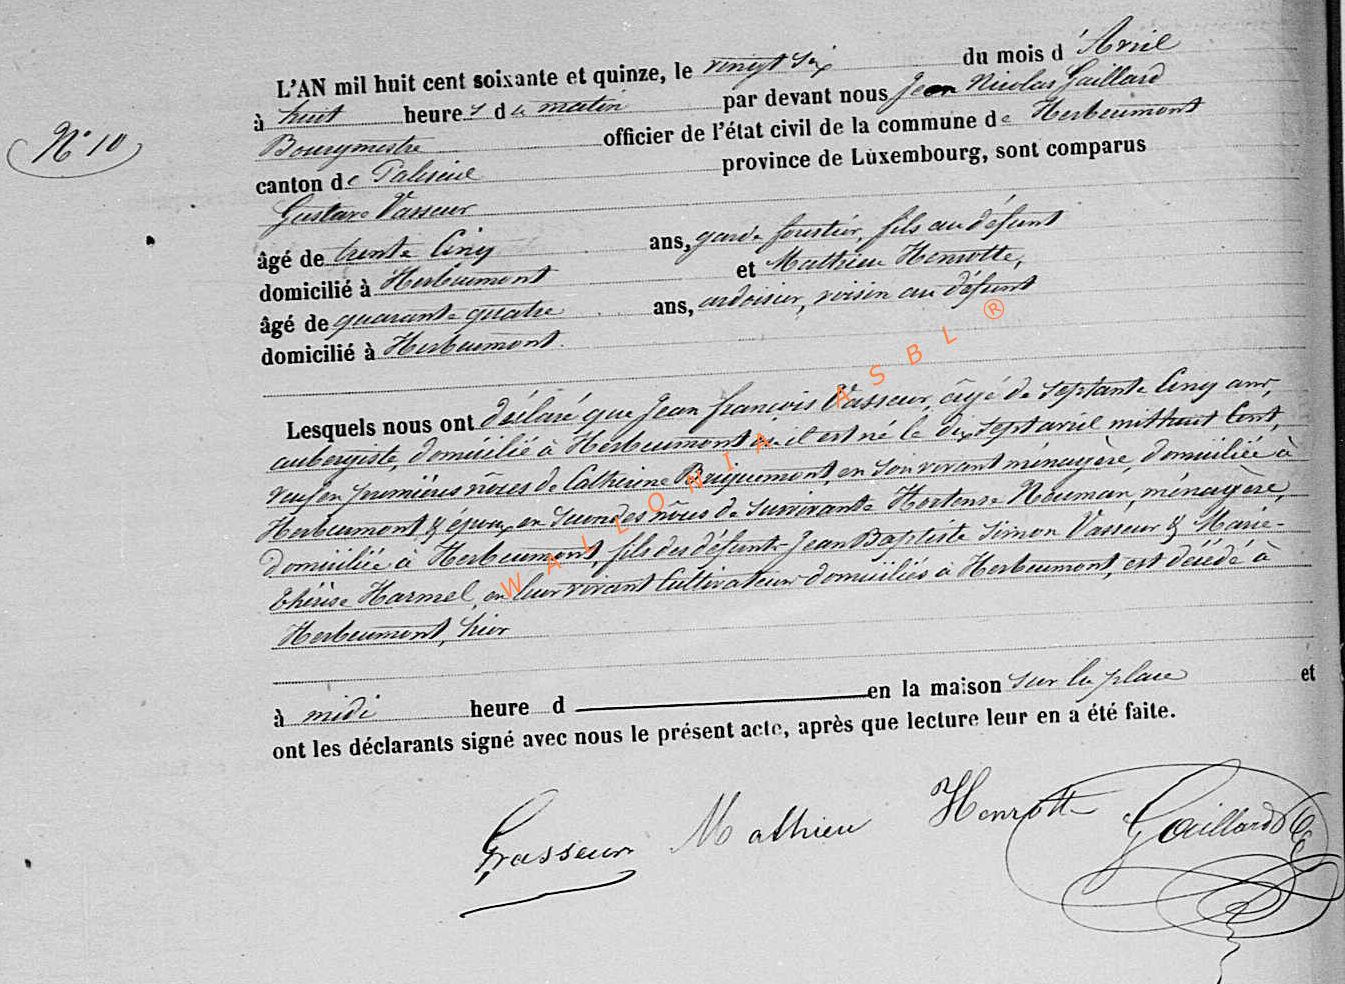 N° 10
L'AN mil huit cent soixante et quinze, le vingt six du mois d'Avril
à huit heures du matin par devant nous Jean Nicolas Gaillard
Bourgmestre officier de l'état civil de la commune de Herbeumont
canton de Paliseul province de Luxembourg, sont comparus
Gustave Vasseur
âgé de trente cinq ans, garde forestier, fils au défunt
domicilié à Herbeumont et Mathieu Henrotte,
âgé de quarante quatre ans, ardoisier, voisin au défunt
domicilié à Herbeumont.
Lesquels nous ont déclaré que Jean François Vasseur, âgé de septante cinq ans,
aubergiste, domicilié à Herbeumont où il est né le dix sept avril mil huit cent,
veuf en premières nôces de Catherine en son vivant ménagère, domiciliée à
Herbeumont & époux en secondes nôces de survivante Hortense Neuman, ménagère,
domiciliée à Herbeumont, fils des défunts Jean Baptiste Simon Vasseur & Marie-
Thérèse Harmel, en leur vivant Cultivateurs domiciliés à Herbeumont, est décédé à
Herbeumont, hier
à midi heure d en la maison sur la place et
ont les déclarants signé avec nous le présent acte, après que lecture leur en a été faite.
GVasseur Mathieu Henrotte Gaillard
WALLONIA ASBL ®